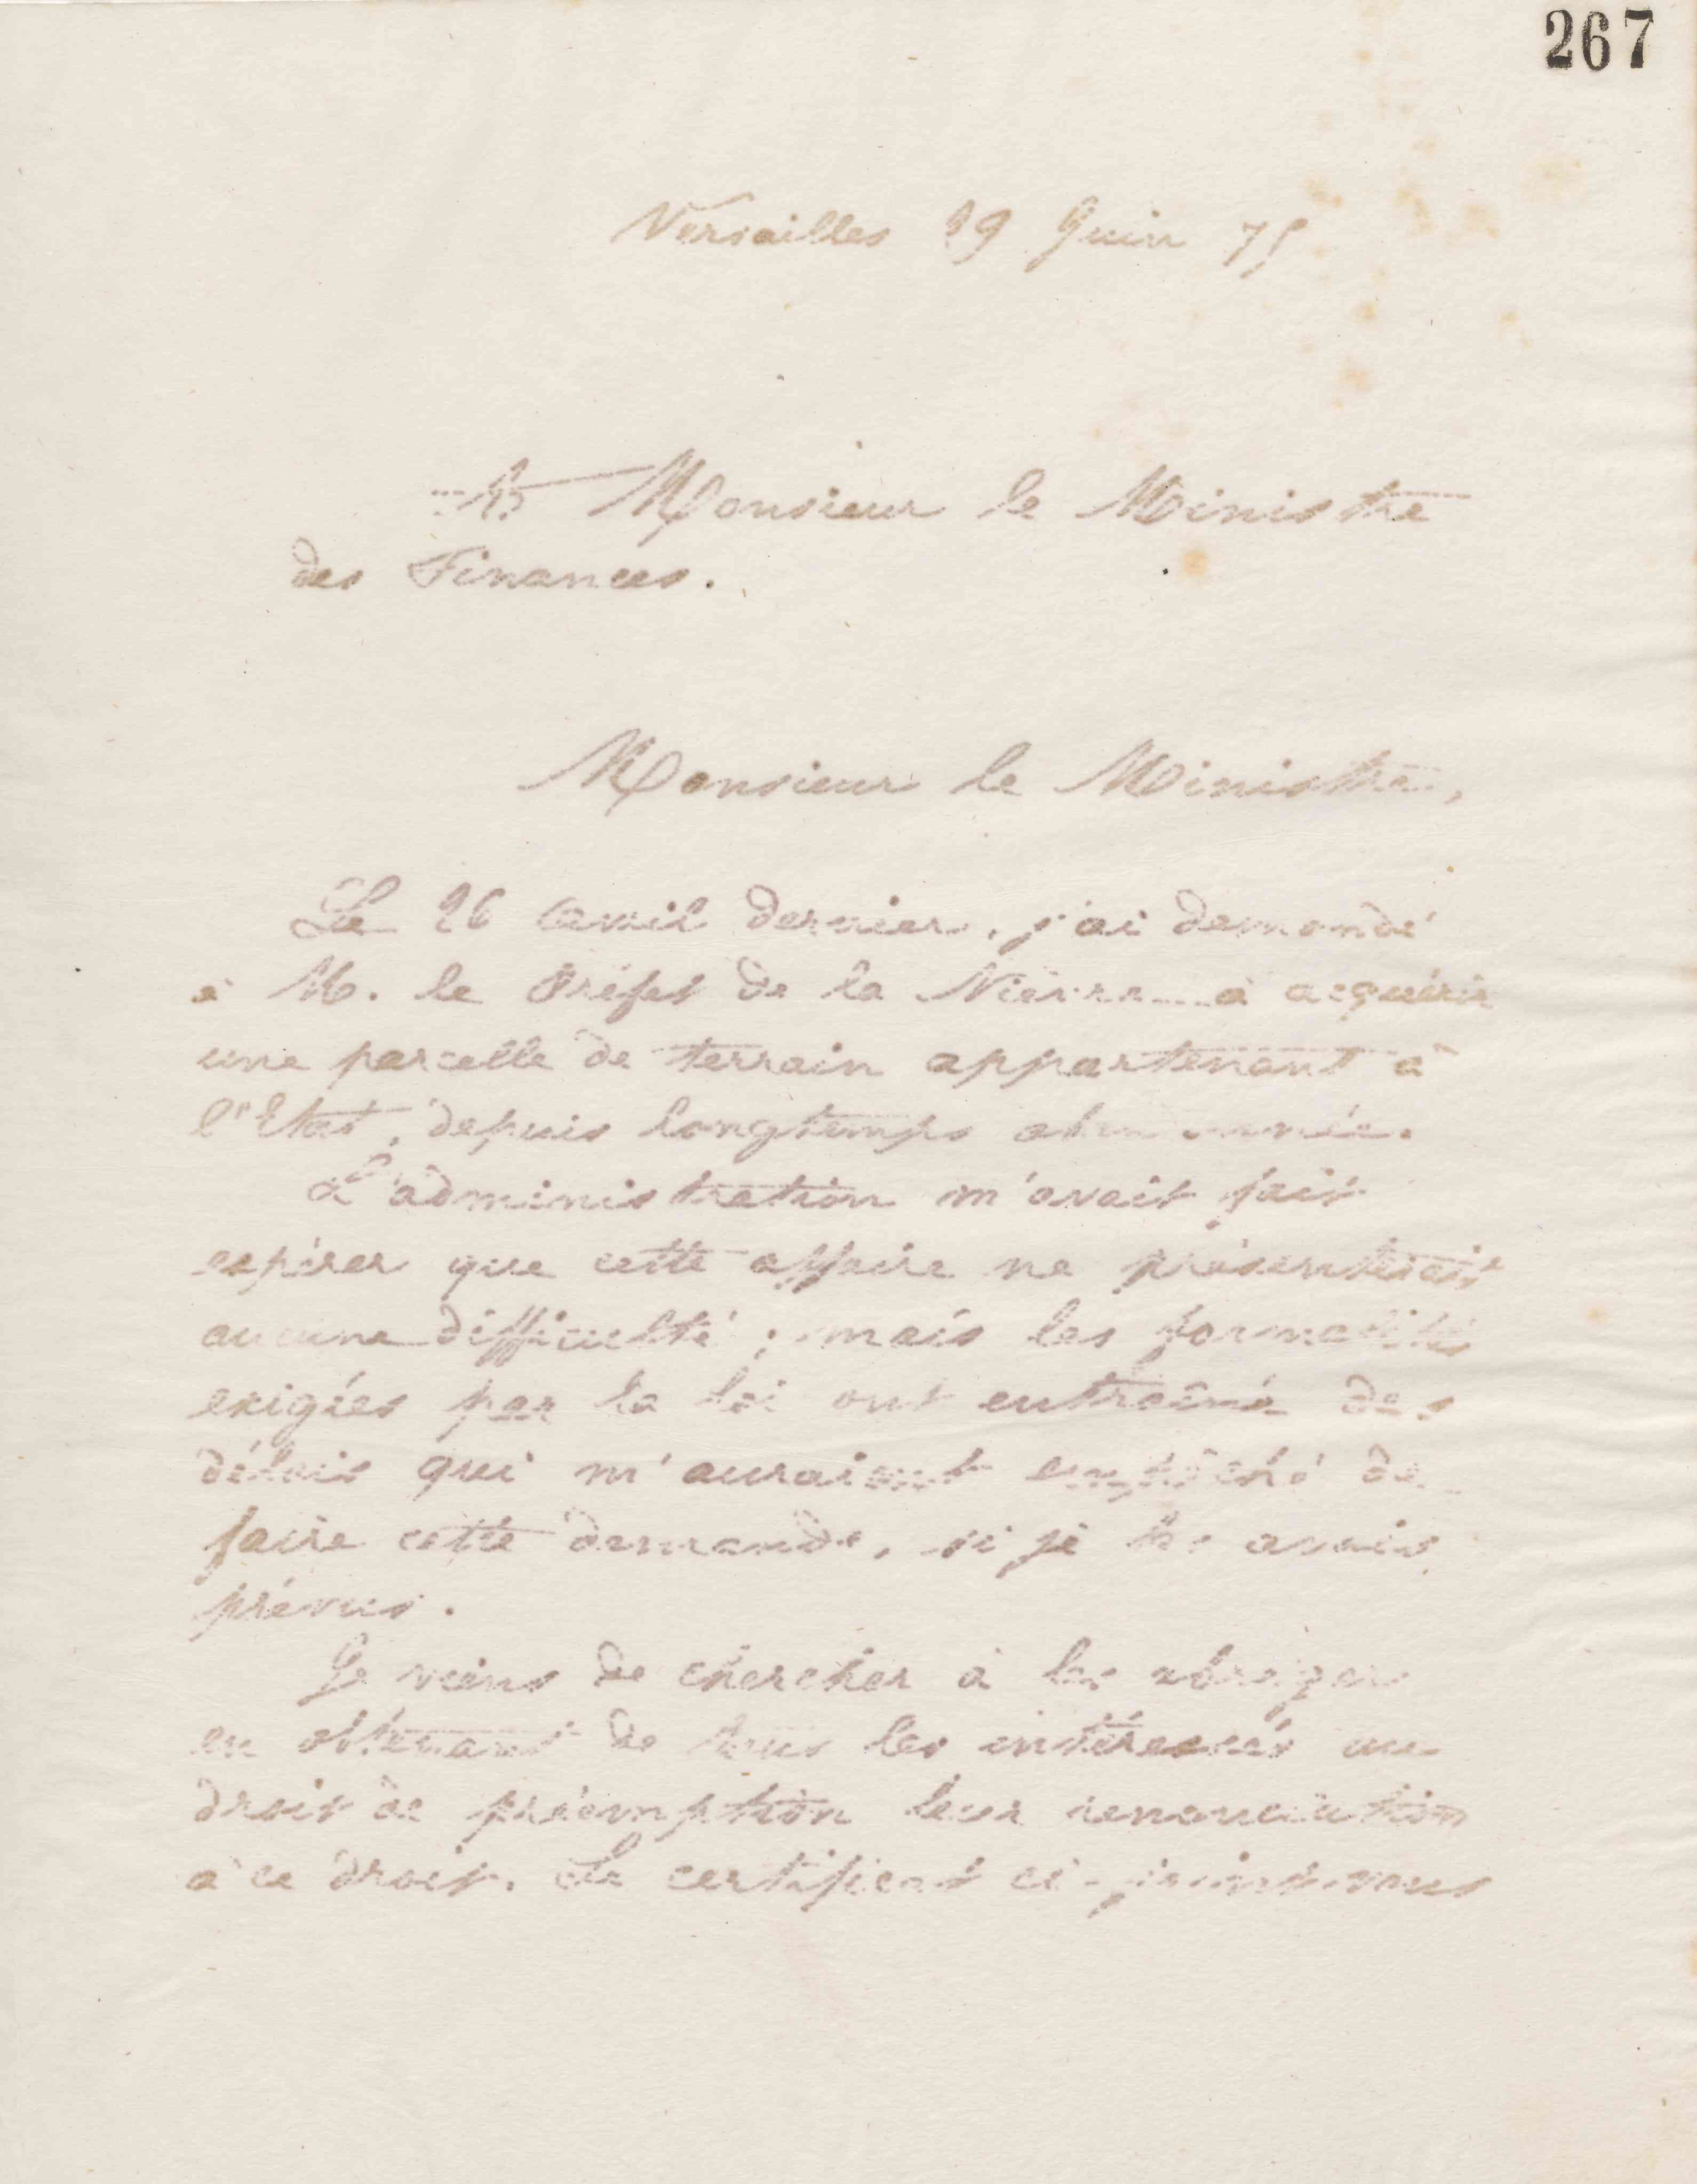 267
Versailles 29 Juin 75
A Monsieur le Ministre
des Finances.
Monsieur le Ministre,
Le 26 avril dernier, j'ai demandé
à M. le Préfet de la Nièvre à acquérir
une parcelle de terrain appartenant à
l'Etat, depuis longtemps abandonnée.
L'administration m'avait fait
espérer que cette affaire ne présenterait
aucune difficulté ; mais les formalités
exigées par la loi ont entraîné des
délais qui m'auraient empêché de
faire cette demande, si je les avais
prévus.
Je viens de chercher à les abréger
en obtenant de tous les intéressés au
droit de préemption leur renonciation
à ce droit. Le certificat ci-joint vous